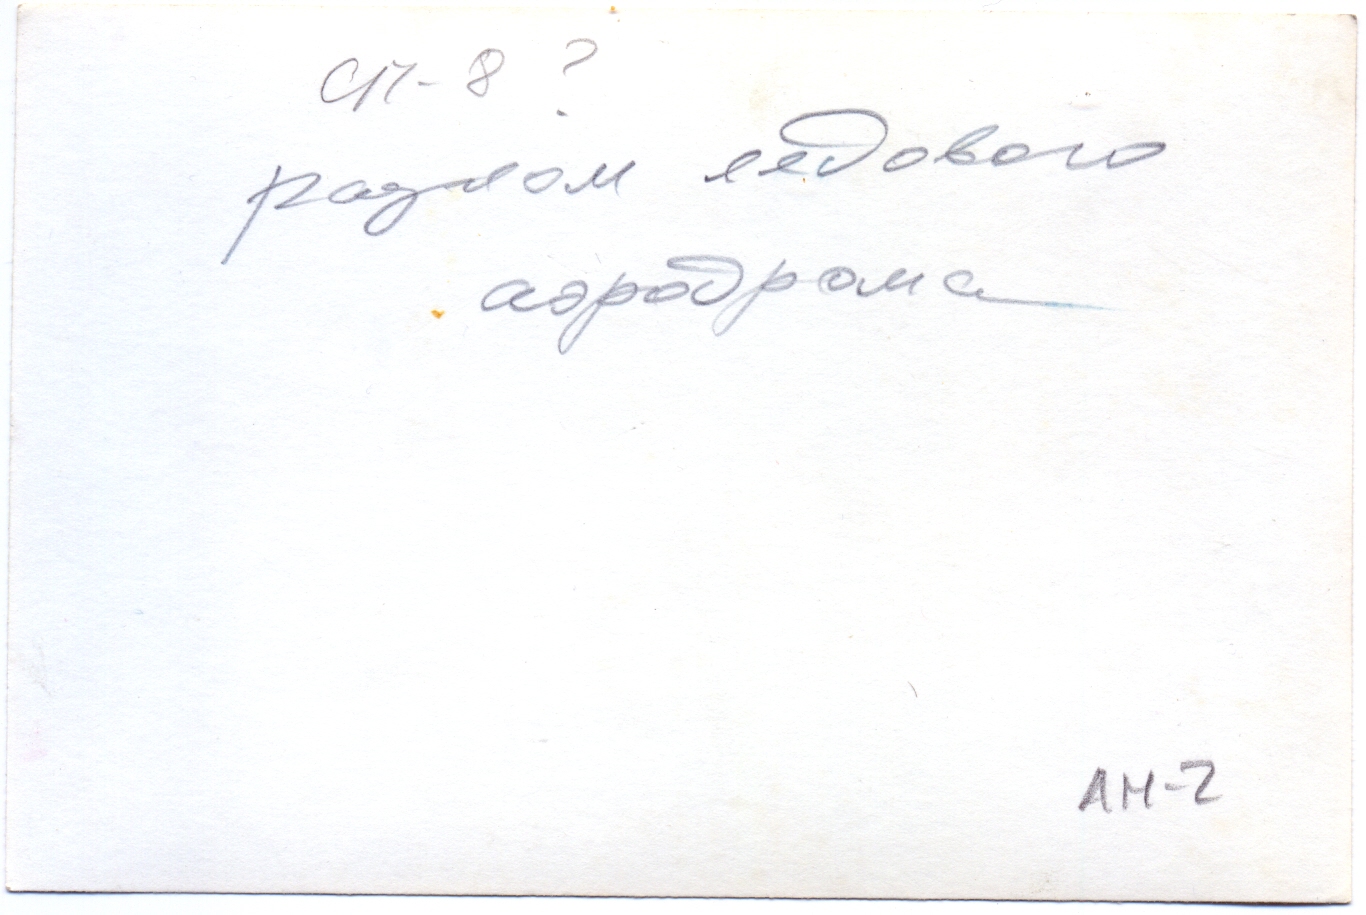 СП-8 ?
разлом ледового
аэродрома
АН-2